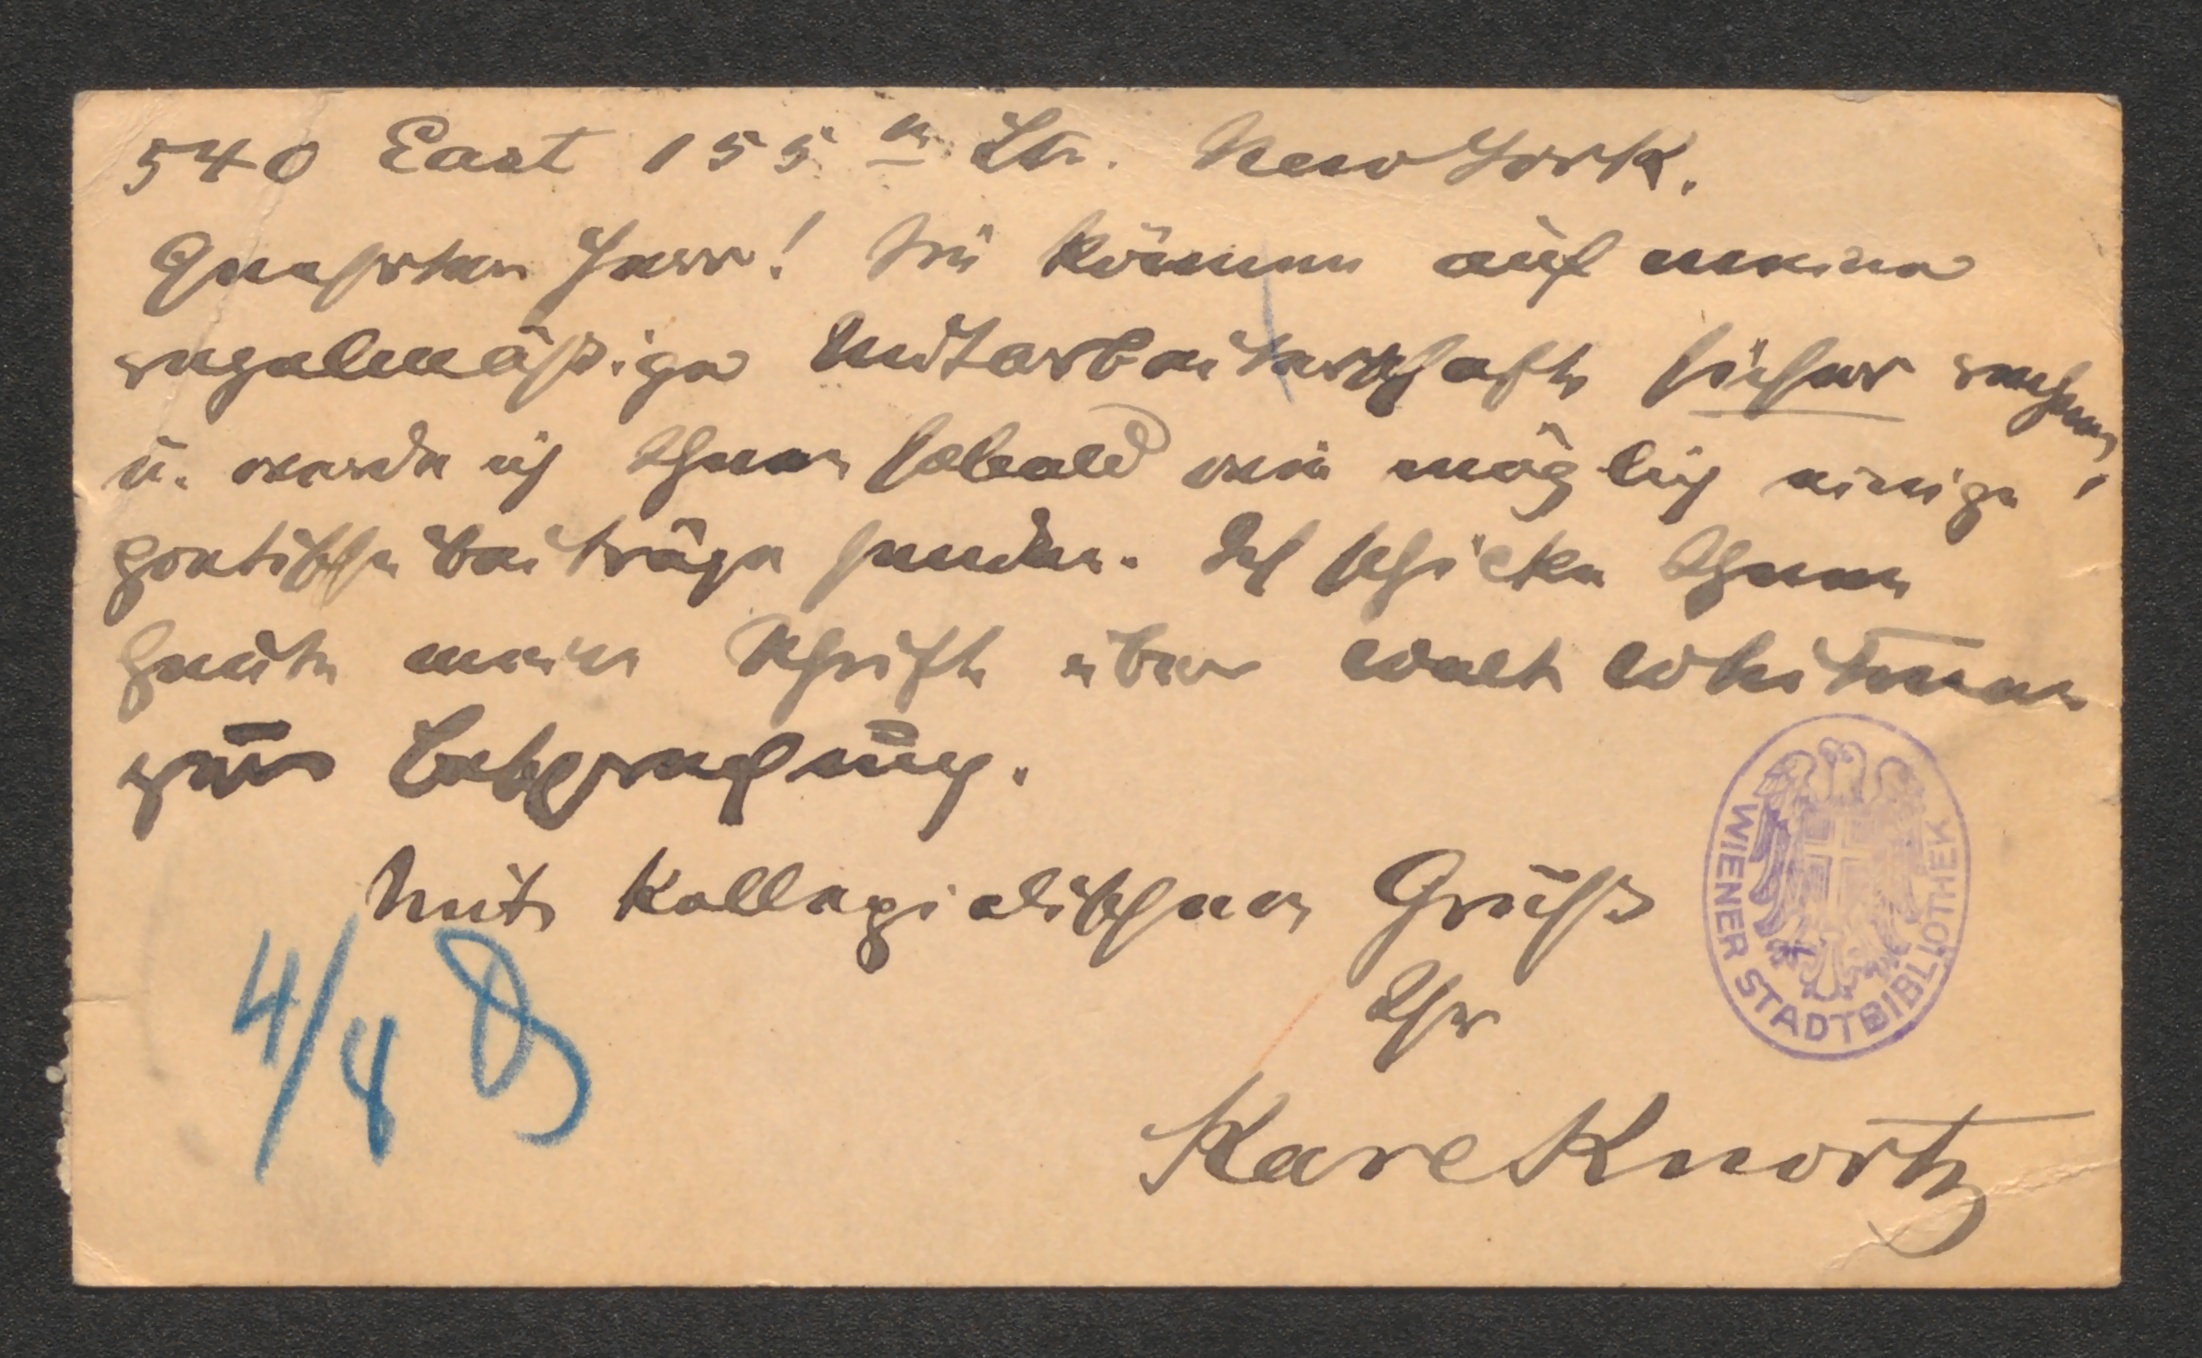 540 East 155th Str. New York.
Geehrter Herr! Sie können auf meine
regelmäßige Mitarbeiterschaft sicher rechnen,
u. werde ich Ihnen sobald wie möglich einige
poetische Beiträge senden. Ich schicke Ihnen
heute meine Schrift über Walt Whitman
zur Besprechung.
Mit kollegialischem Gruß
Ihr
Karl Knortz
4/8
WIENER STADTBIBLIOTHEK